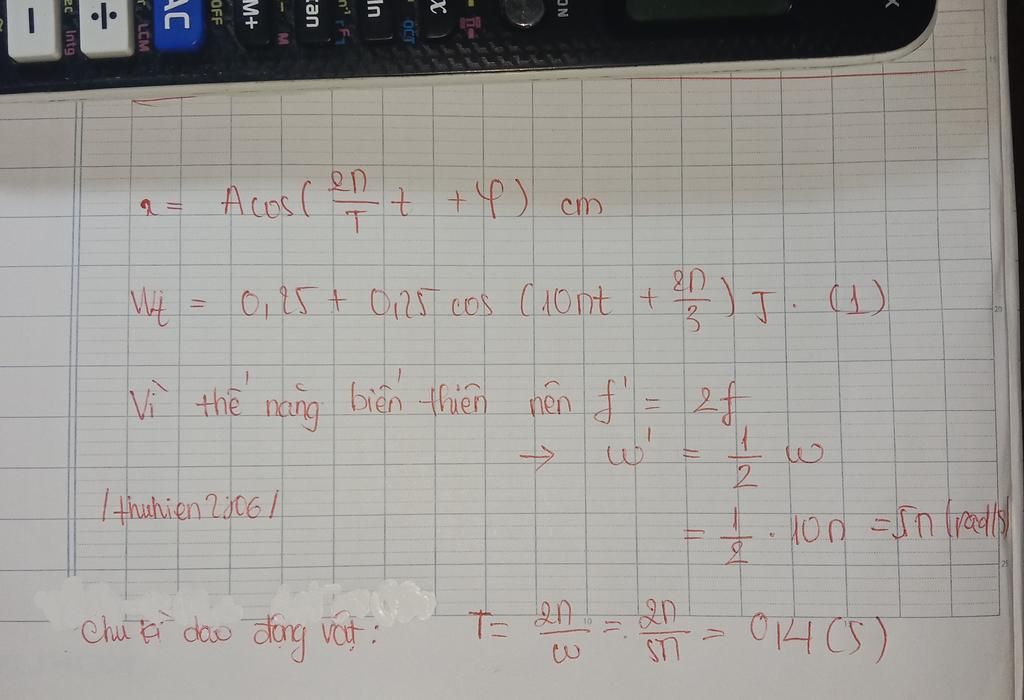 OFF
AC
÷
−
M+
M
tan
ln
x
ON
OCT
LCM
Intg
x = A cos( 2π/T t + φ) cm
Wt = 0,25 + 0,25 cos (10πt + 2π/3) J. (1)
Vì thế năng biến thiên nên f' = 2f
→ ω' = 1/2 ω
/thuhien2006/
= 1/2 . 10π = 5π (rad/s)
Chu kì dao động vật: T = 2π/ω = 2π/5π = 0,4 (s)